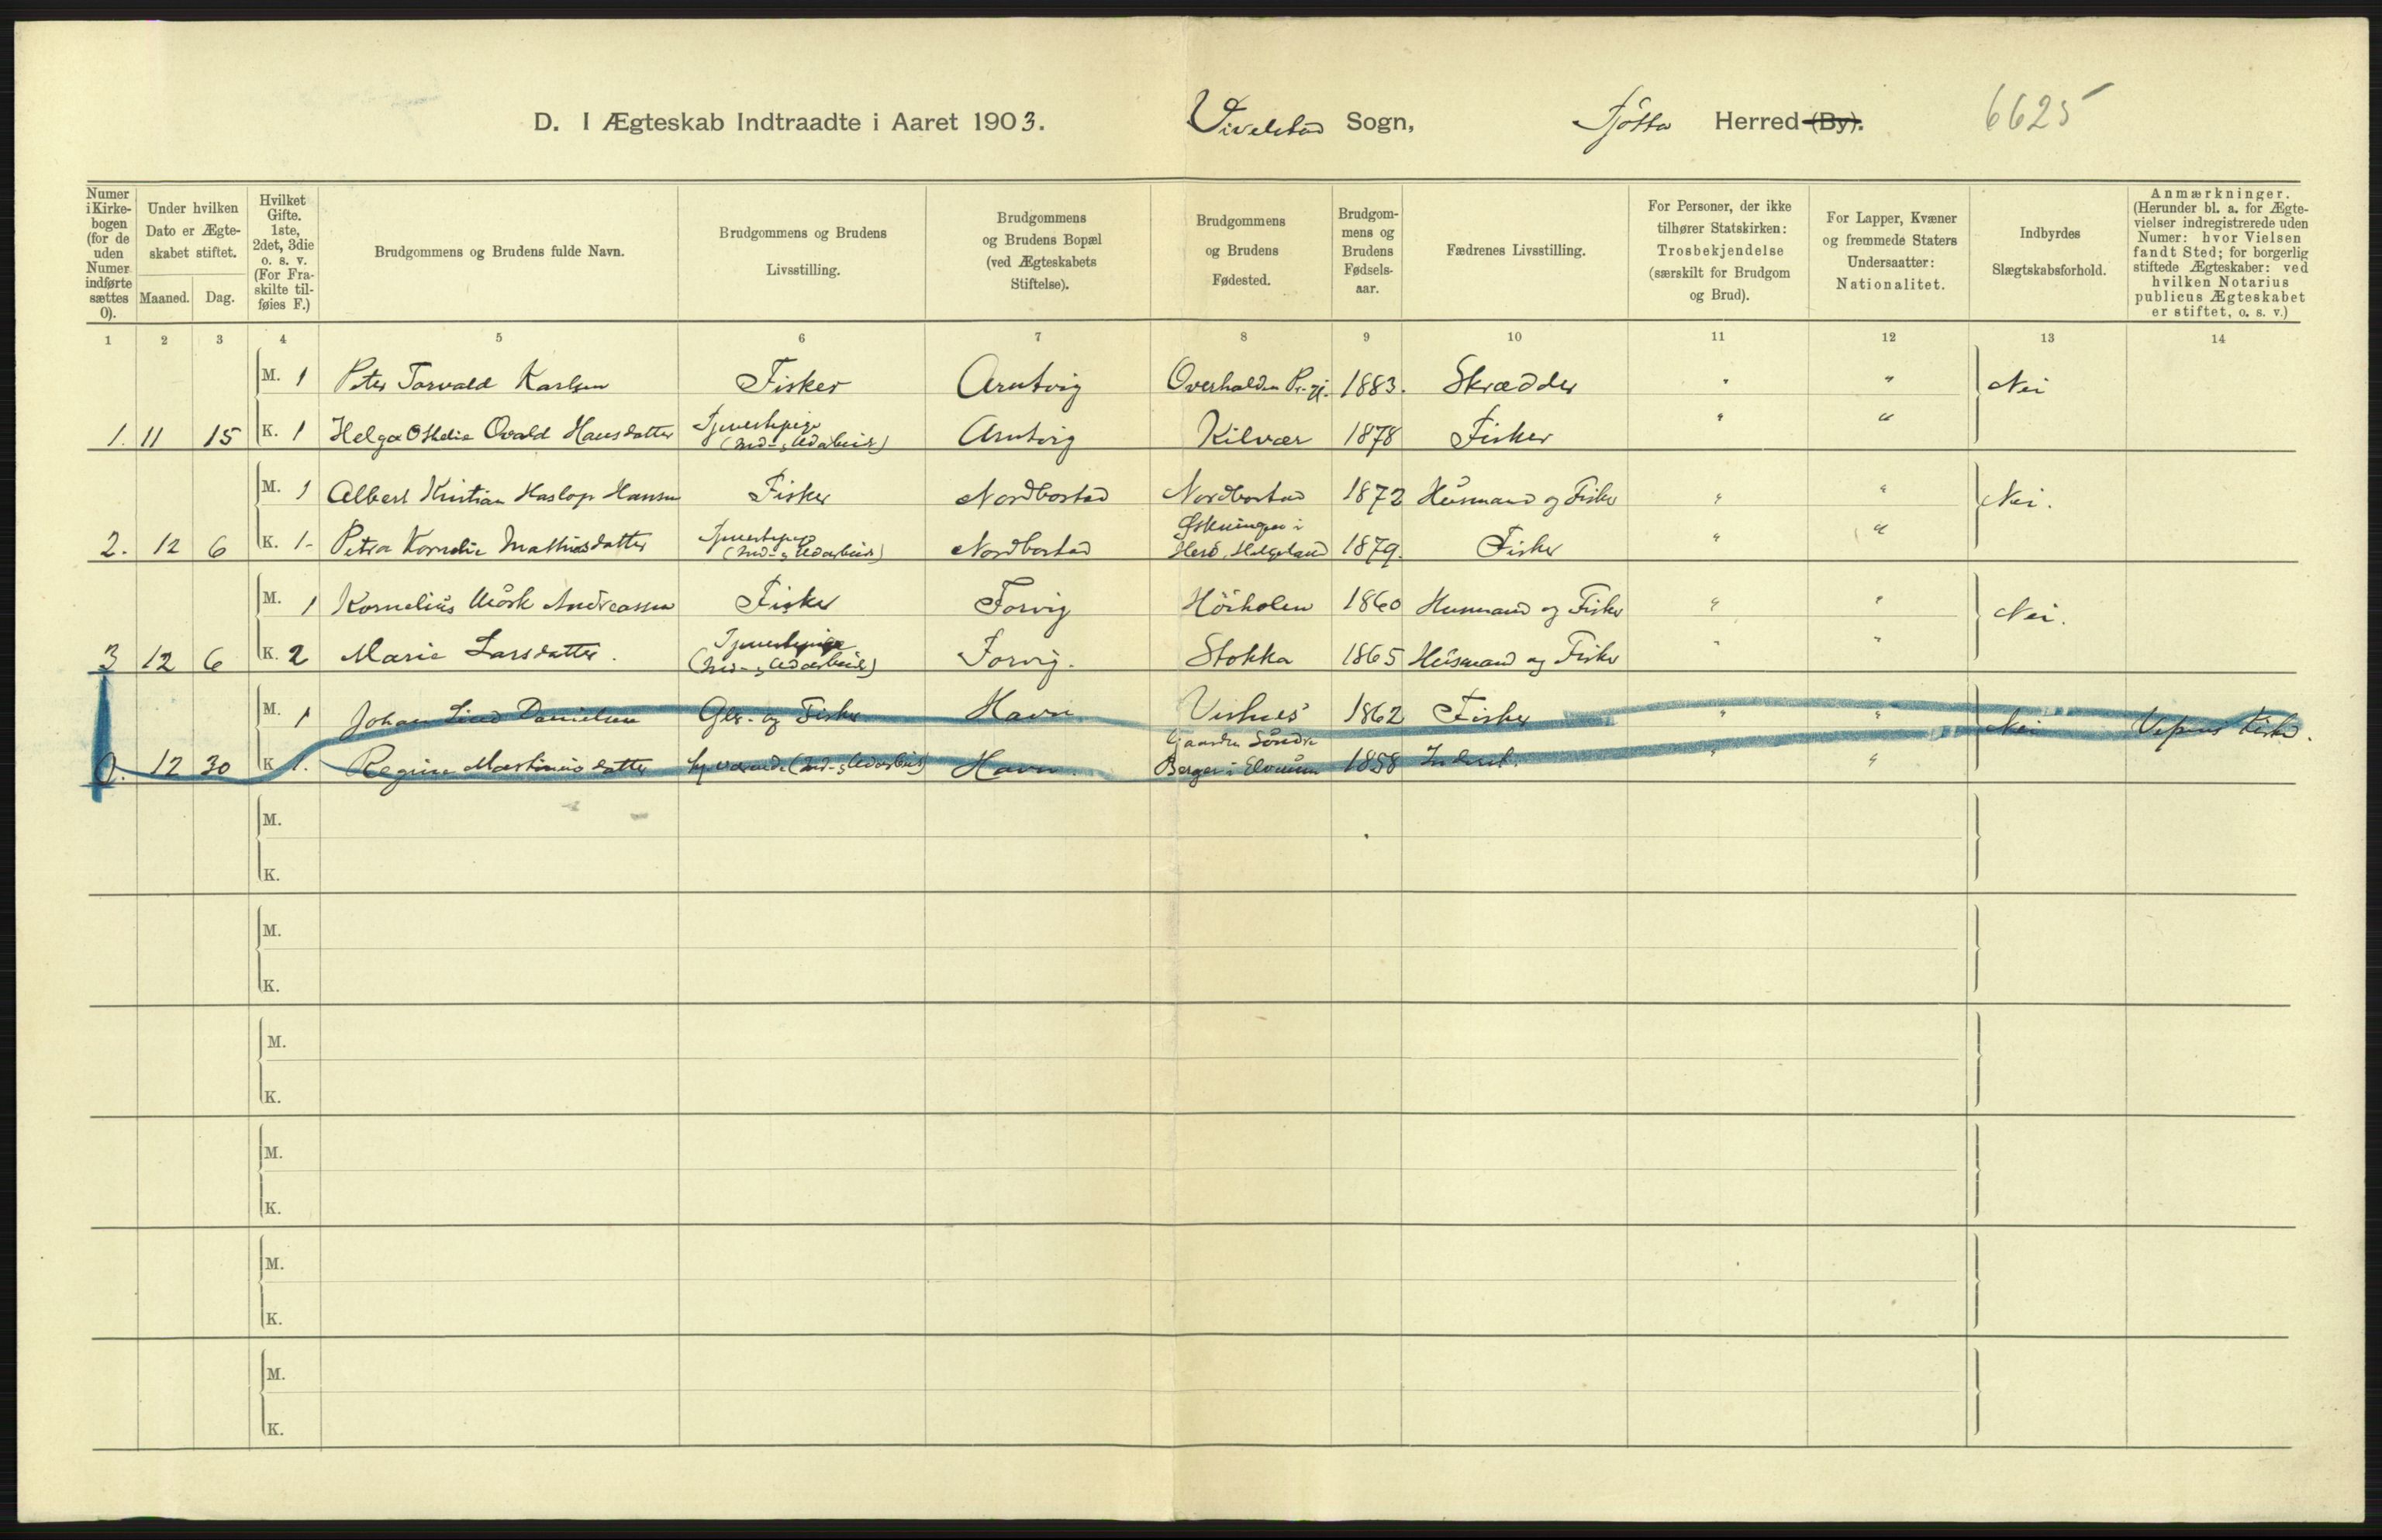 D. I Ægteskab Indtraadte i Aaret 1903. Vivelstad Sogn, Tjøtta Herred (By). 6625
Numer i Kirkebogen (for de uden Numer indførte sættes 0).
Under hvilken Dato er Ægteskabet stiftet.
Maaned. Dag.
Hvilket Gifte. 1ste, 2det, 3die o. s. v. (For Fraskilte tilføies F.)
Brudgommens og Brudens fulde Navn.
Brudgommens og Brudens Livsstilling.
Brudgommens og Brudens Bopæl (ved Ægteskabets Stiftelse).
Brudgommens og Brudens Fødested.
Brudgommens og Brudens Fødselsaar.
Fædrenes Livsstilling.
For Personer, der ikke tilhører Statskirken: Trosbekjendelse (særskilt for Brudgom og Brud).
For Lapper, Kvæner og fremmede Staters Undersaatter: Nationalitet.
Indbyrdes Slægtskabsforhold.
Anmærkninger. (Herunder bl. a. for Ægtevielser indregistrerede uden Numer: hvor Vielsen fandt Sted; for borgerlig stiftede Ægteskaber: ved hvilken Notarius publicus Ægteskabet er stiftet, o. s. v.)
1 2 3 4 5 6 7 8 9 10 11 12 13 14
M. 1 Peter Torvald Karlsen Fisker Arntvig Overhalden Pr.gj. 1883. Skrædder " " Nei
1. 11 15 K. 1 Helga Othelie Ovald Hansdatter Tjenestepige (Ind- & Udarbeid) Arntvig Kilvær 1878 Fisker " "
M. 1 Albert Kristian Haslop Hansen Fisker Nordbostad Nordbostad 1872 Husmand og Fisker " " Nei.
2. 12 6 K. 1. Petra Kornelie Mathiasdatter Tjenestepige (Ind- & Udarbeid) Nordbostad Øskningen i Herö, Helgeland 1879. Fisker " "
M. 1 Kornelius Mörk Andreassen Fisker Forvig Höiholen 1860 Husmand og Fisker " " Nei.
3 12 6 K. 2 Marie Larsdatter. Tjenestepige (Ind- & Udarbeid) Forvig. Stokka 1865 Husmand og Fisker " "
M. 1 Johan Lind Danielsen Gbr. og Fisker Havn Vistnes 1862 Fisker " " Nei Vefsns Kirke.
0. 12 30 K 1. Regine Martinusdatter Hjemværende (Ind- & Udarbeid) Havn. Gaarden Söndre Berger i Elverum 1858 Inderst. " "
M.
K.
M.
K.
M.
K.
M.
K.
M.
K.
M.
K.